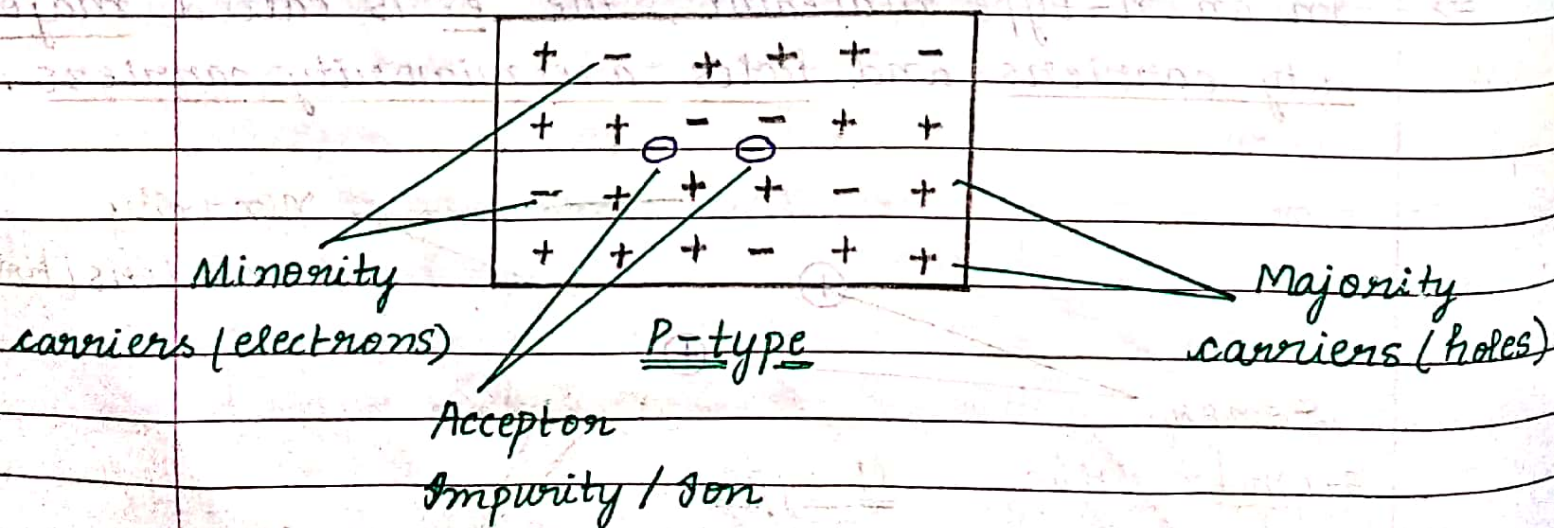 + - + + + -
+ + - - + +
⊖ ⊖
- + + + - +
+ + + - + +
Minority
carriers (electrons)
P-type
Majority
carriers (holes)
Acceptor
Impurity / Ion